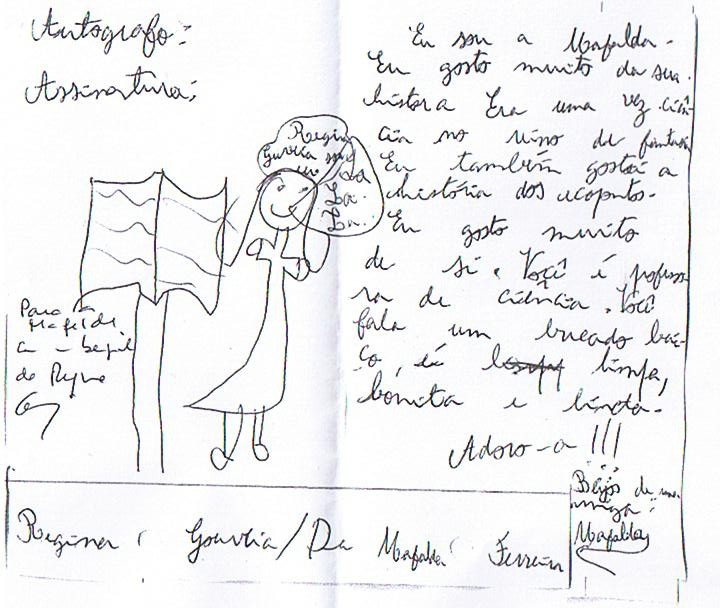 Autografo:
Assinatura:
Regina
Gouvêa sou
eu
La
La.
La.
Para a
Mafalda
um beijo
da Regina
Eu sou a Mafalda.
Eu gosto muito da sua
histora Era uma vez ciên
cia no reino da fantasia
Eu também gostei a
história dos
Eu gosto muito
de si. Você é professo
ra de ciência. Você
fala um bucado bai
xo, é limpa,
bonita e linda.
Adoro-a !!!
Beijos de uma
amiga:
Mafalda
Regina Gouvia/Da Mafalda Ferreira